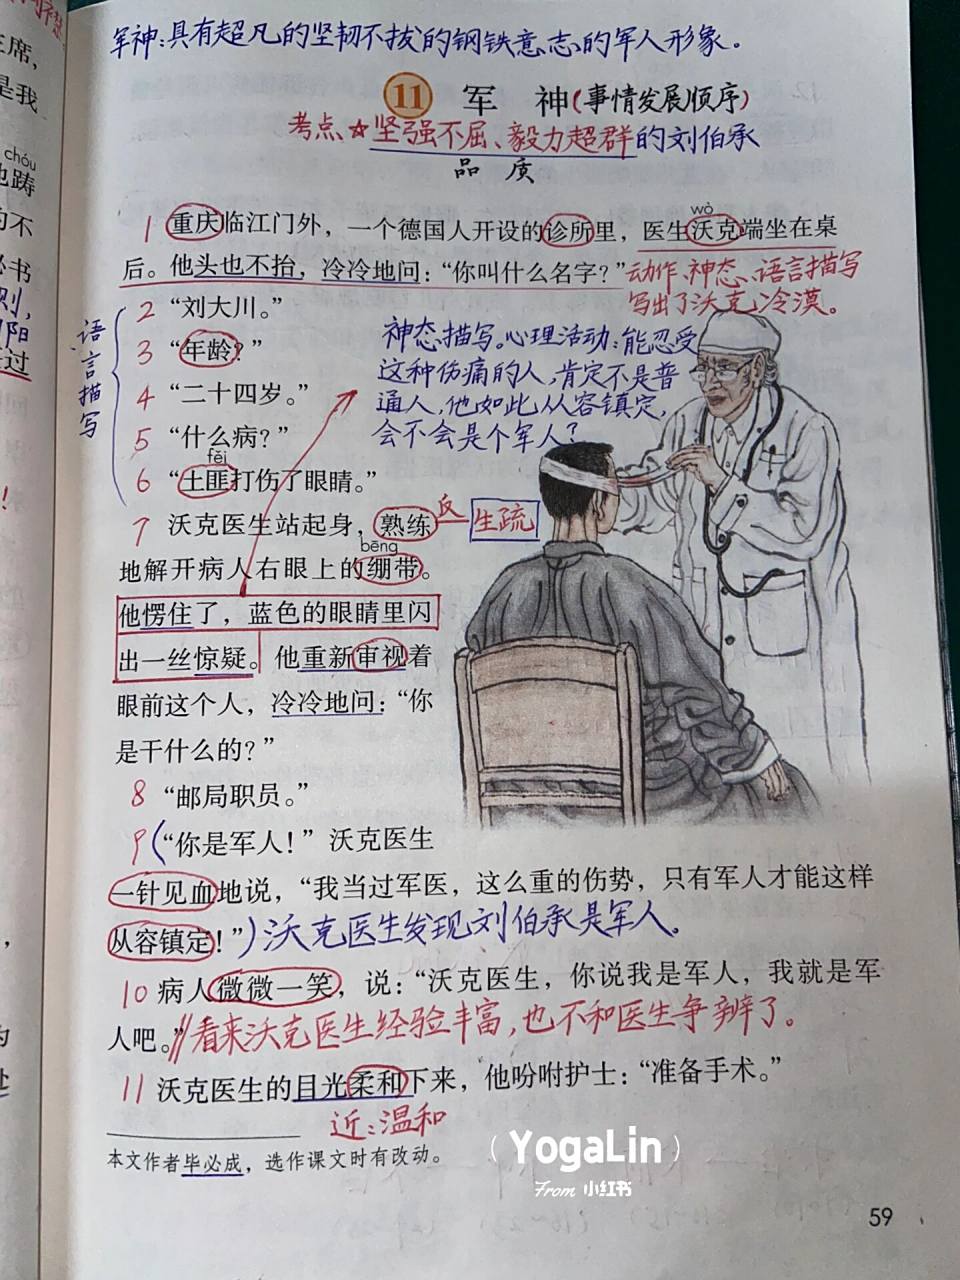 军神：具有超凡的坚韧不拔的钢铁意志的军人形象。
11 军 神(事情发展顺序)
考点☆坚强不屈、毅力超群的刘伯承
品 质
wò
1 重庆临江门外，一个德国人开设的诊所里，医生沃克端坐在桌
后。他头也不抬，冷冷地问：“你叫什么名字？”动作、神态、语言描写
写出了沃克冷漠。
2 “刘大川。”
3 “年龄？”
4 “二十四岁。”
5 “什么病？”
fěi
6 “土匪打伤了眼睛。”
语言描写
神态描写。心理活动：能忍受
这种伤痛的人，肯定不是普
通人，他如此从容镇定，
会不会是个军人？
7 沃克医生站起身，熟练 反 生疏
bēng
地解开病人右眼上的绷带。
他愣住了，蓝色的眼睛里闪
出一丝惊疑。他重新审视着
眼前这个人，冷冷地问：“你
是干什么的？”
8 “邮局职员。”
9 （“你是军人！”沃克医生
一针见血地说，“我当过军医，这么重的伤势，只有军人才能这样
从容镇定！”）沃克医生发现刘伯承是军人。
10 病人微微一笑，说：“沃克医生，你说我是军人，我就是军
人吧。”∥看来沃克医生经验丰富，也不和医生争辨了。
11 沃克医生的目光柔和下来，他吩咐护士：“准备手术。”
近：温和
本文作者毕必成，选作课文时有改动。
（YogaLin）
From 小红书
59
主席，
是我
chóu
也踌
的不
书
则，
阳
过
！